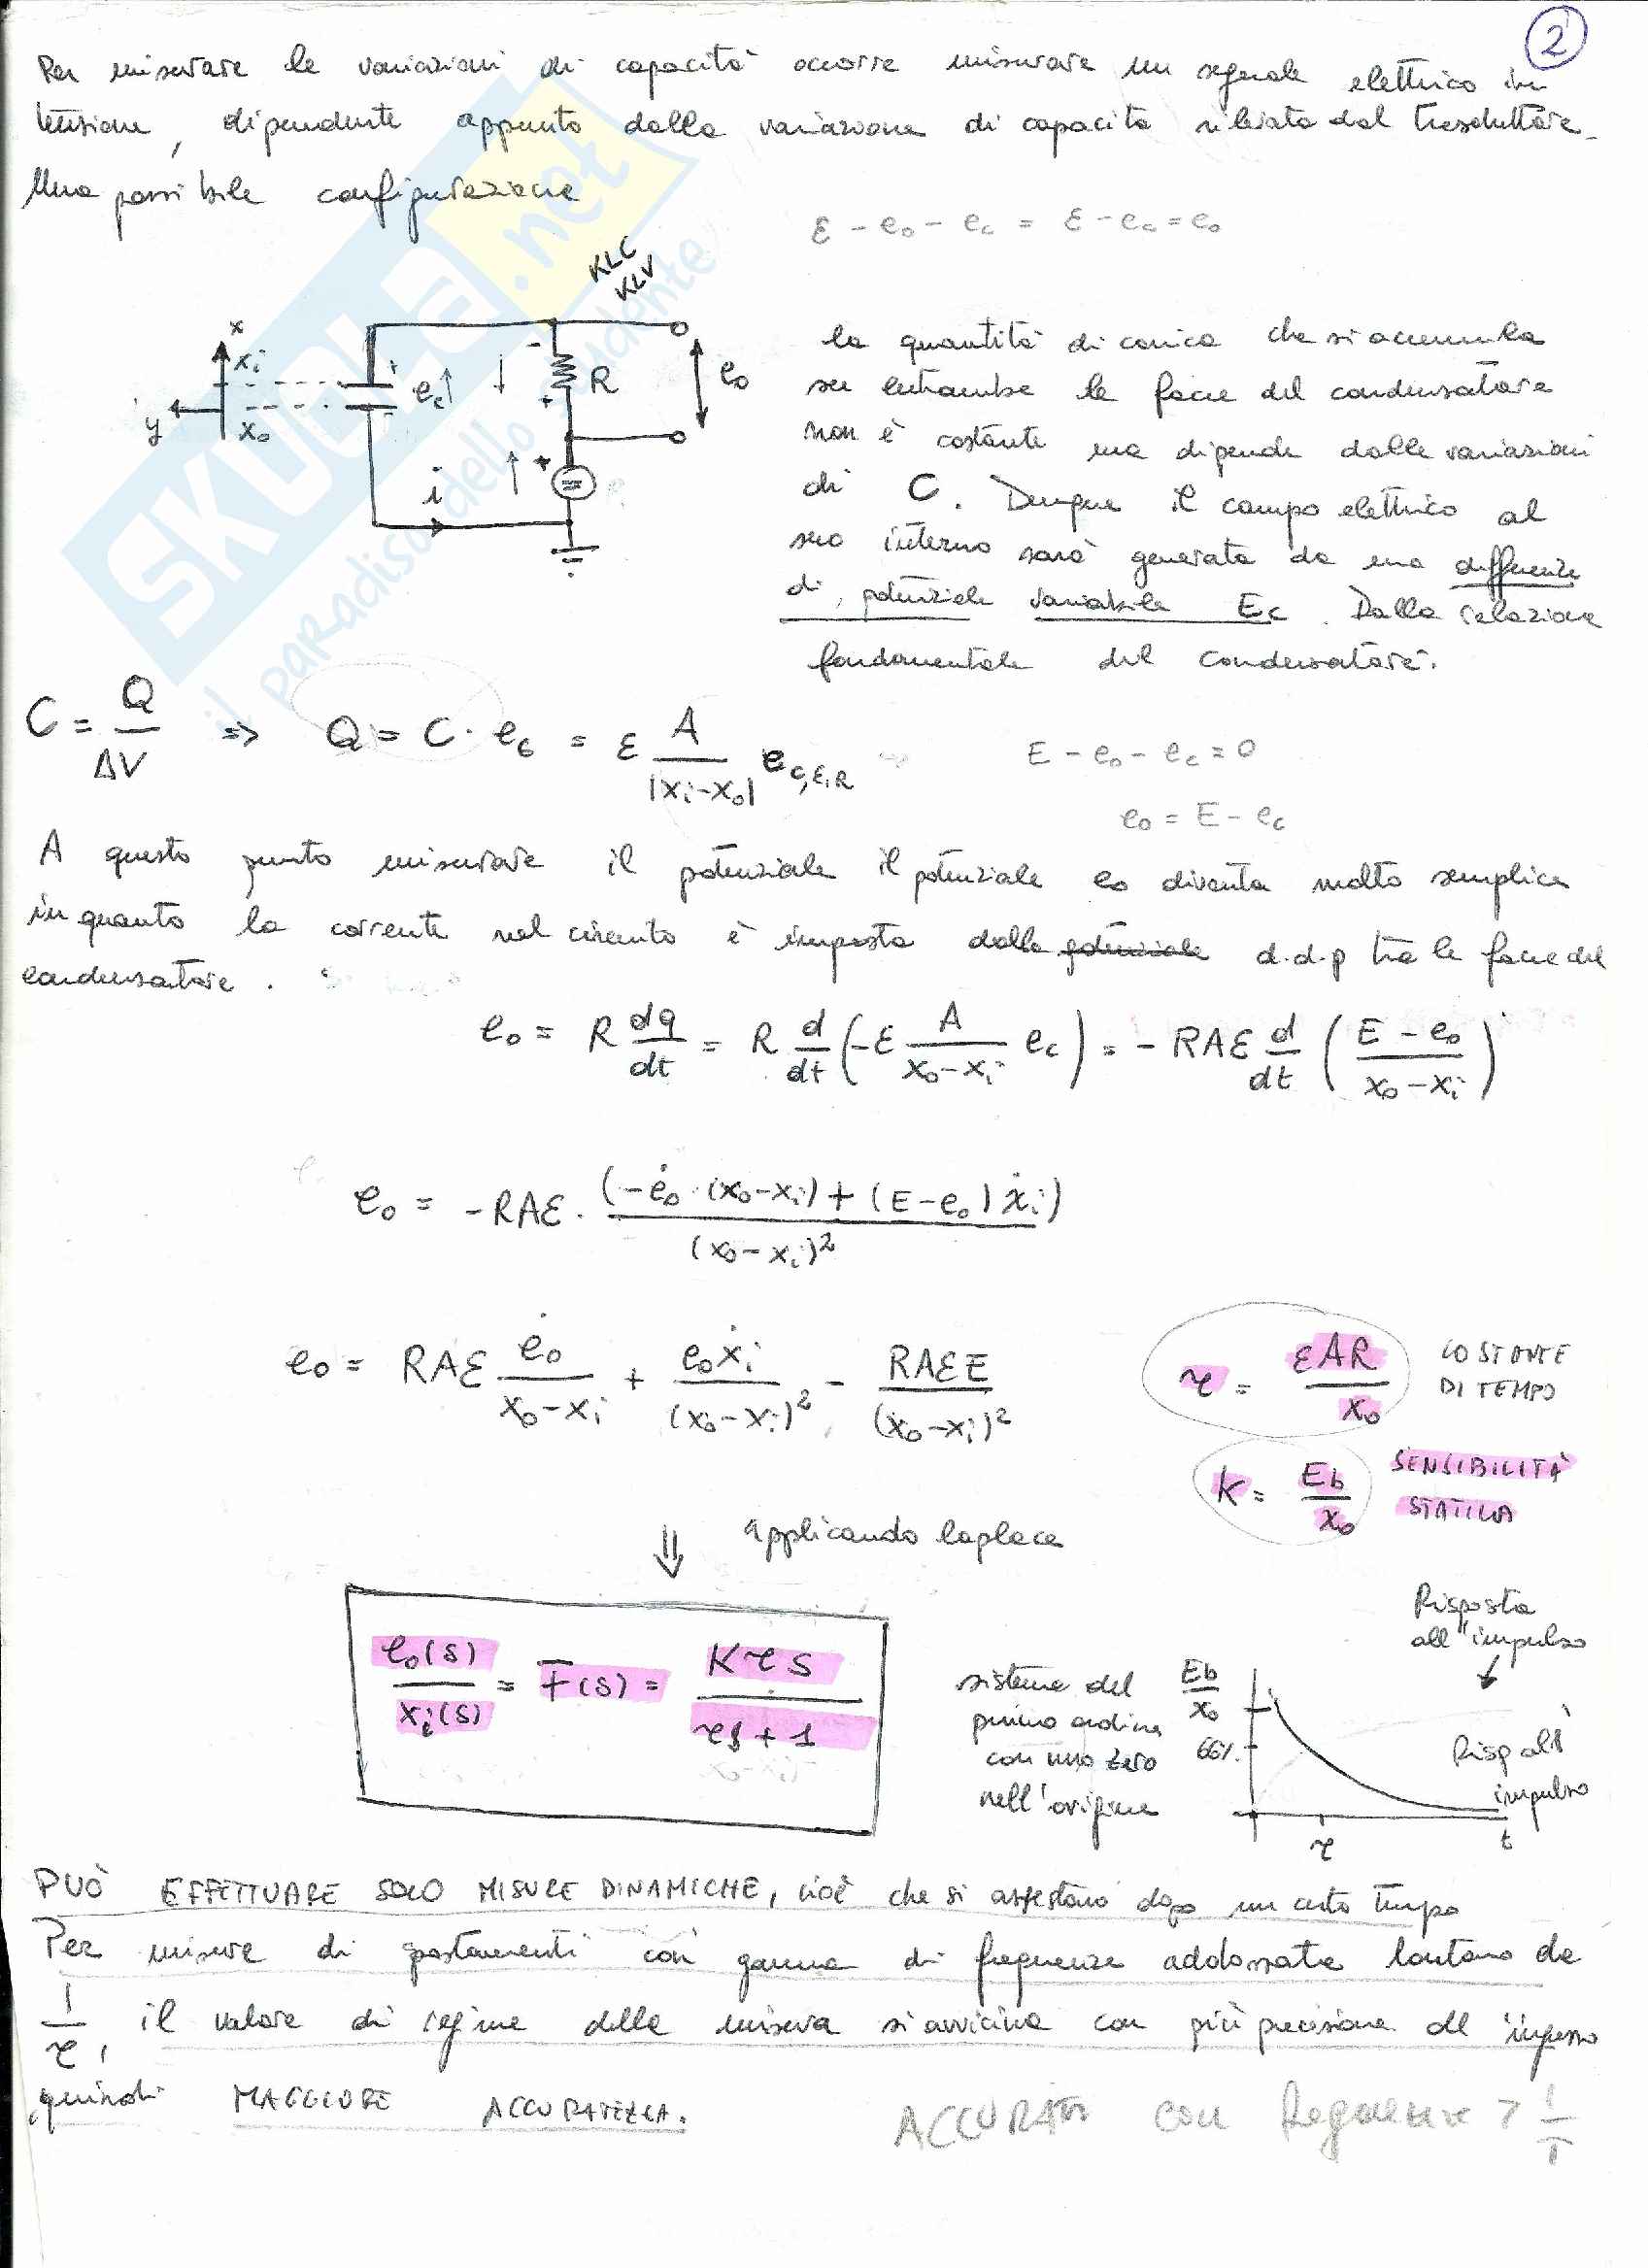 2
Per misurare le variazioni di capacità occorre misurare un segnale elettrico in
tensione, dipendente appunto dalla variazione di capacità rilevata dal trasduttore.
Una possibile configurazione
ε - e₀ - e_c = ε - e_c = e₀
KLC
KLV
x
x_i
y
x₀
+
e_c
-
R
+
e₀
+
i
la quantità di carica che si accumula
su entrambe le facce del condensatore
non è costante ma dipende dalle variazioni
di C. Dunque il campo elettrico al
suo interno sarà generato da una differenza
di potenziale variabile E_c. Dalla relazione
fondamentale del condensatore.
C = Q/ΔV => Q = C · e_c = ε A/|x_i-x₀| e_c,E,R
E - e₀ - e_c = 0
e₀ = E - e_c
A questo punto misurare il potenziale il potenziale e₀ diventa molto semplice
in quanto la corrente nel circuito è imposta dalla potenziale d.d.p tra le facce del
condensatore.
e₀ = R dq/dt = R d/dt (-ε A/(x₀-x_i) e_c) = - RAε d/dt ((E - e₀)/(x₀-x_i))
e₀ = -RAε · (-ė₀ · (x₀-x_i) + (E-e₀) ẋ_i)/(x₀-x_i)²
e₀ = RAε ė₀/(x₀-x_i) + e₀ẋ_i/(x₀-x_i)² - RAεE/(x₀-x_i)²
τ = εAR/x₀ COSTANTE
DI TEMPO
K = Eb/x₀ SENSIBILITÀ
STATICA
⇓ applicando laplace
e₀(s)/x_i(s) = F(s) = Kτs/(τs + 1)
sistema del
primo ordine
con uno zero
nell'origine
Risposta
all'impulso
Eb/x₀
66%
Risp all'
impulso
τ
t
PUÒ EFFETTUARE SOLO MISURE DINAMICHE, cioè che si assestano dopo un certo tempo
Per misure di spostamenti con gamma di frequenze addossata lontano da
1/τ, il valore di regime della misura si avvicina con più precisione all'ingresso
quindi MAGGIORE ACCURATEZZA.
ACCURATI con > 1/τ
il paradiso dello studente
SKUOLA.net